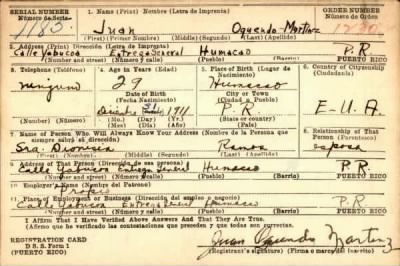 SERIAL NUMBER 1. Name (Print) Nombre (Letra de Imprenta) ORDER NUMBER
Número de Serie Número de Orden
Juan Oquendo Martinez
(First) (Primer Nombre) (Middle) (Segundo Nombre) (Last) (Apellidos)
2. Address (Print) Dirección (Letra de Imprenta)
Calle Yabucoa Entrega General Humacao P. R.
(Number and street) (Número y calle) (Town) (Pueblo) Barrio) PUERTO RICO
3. Telephone (Teléfono) 4. Age in Years (Edad) 5. Place of Birth (Lugar de Nacimiento) 6. Country of Citizenship (Ciudadanía)
ninguno 29 Humacao
Date of Birth City or Town
(Fecha Nacimiento) (Ciudad o Pueblo)
1911 P. R. E-U. A
(Number) (Número) (Mo.) (Day) (Yr.) (State or country)
(Mes) (Día) (Año) (Estado o país)
7. Name of Person Who Will Always Know Your Address (Nombre de la Persona que siempre sabrá su dirección) 8. Relationship of That Person (Parentesco)
Sra. Dionisia Ramos esposa
(First) (Primero) (Middle) (Segundo) (Last) (Apellidos)
9. Address of That Person (Dirección de esa persona)
Calle Yabucoa Entrega General Humacao P. R.
(Number and street) (Número y calle) (Town) (Pueblo) (Barrio) PUERTO RICO
10. Employer's Name (Nombre del Patrono)
11. Place of Employment or Business (Dirección del empleo o negocio)
Calle Yabucoa Entrega General Humacao P. R.
(Number and street) (Número y calle) (Town) (Pueblo) (Barrio) PUERTO RICO
I Affirm That I Have Verified Above Answers and That They Are True.
(Afirmo que he verificado las contestaciones que preceden y que todas son correctas.
REGISTRATION CARD Juan Oquendo Martinez
D. S. S. Form 1 (Registrant's signature) (Firma o marca del inscrito)
(PUERTO RICO)